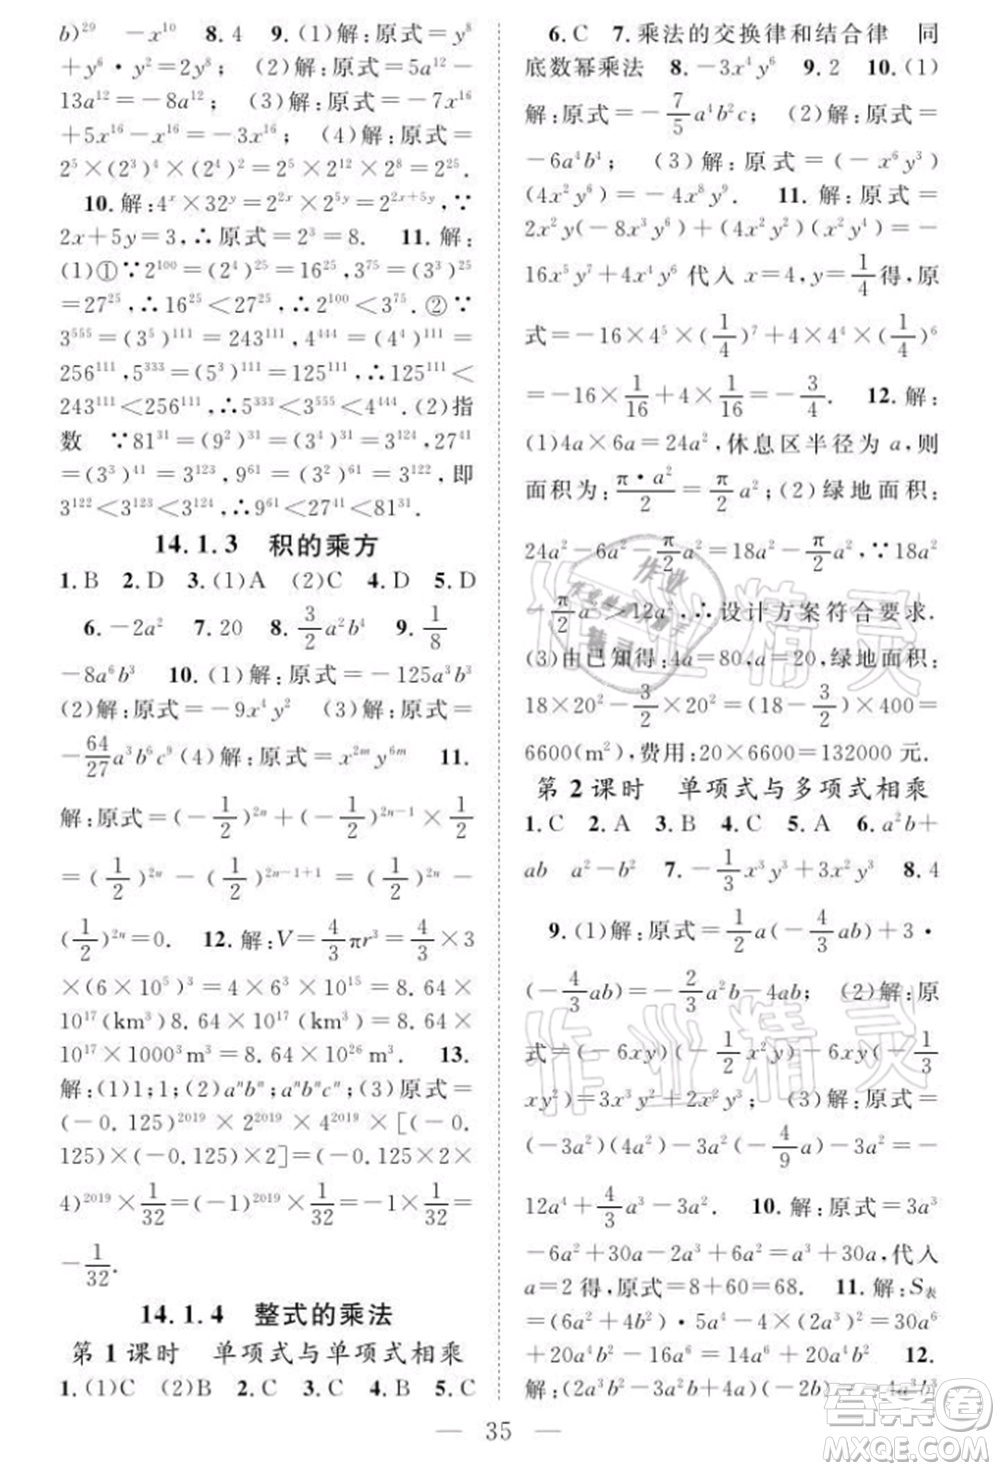 b)²⁹　-x¹⁰　8. 4　9. (1)解:原式=y⁸
+y⁶·y²=2y⁸; (2)解:原式=5a¹²-
13a¹²=-8a¹²; (3)解:原式=-7x¹⁶
+5x¹⁶-x¹⁶=-3x¹⁶; (4)解:原式=
2⁵×(2³)⁴×(2⁴)²=2⁵×2¹²×2⁸=2²⁵.
10. 解:4ˣ×32ʸ=2²ˣ×2⁵ʸ=2²ˣ⁺⁵ʸ,∵
2x+5y=3,∴原式=2³=8.　11. 解:
(1)①∵2¹⁰⁰=(2⁴)²⁵=16²⁵,3⁷⁵=(3³)²⁵
=27²⁵,∴16²⁵<27²⁵,∴2¹⁰⁰<3⁷⁵.②∵
3⁵⁵⁵=(3⁵)¹¹¹=243¹¹¹,4⁴⁴⁴=(4⁴)¹¹¹=
256¹¹¹,5³³³=(5³)¹¹¹=125¹¹¹,∴125¹¹¹<
243¹¹¹<256¹¹¹,∴5³³³<3⁵⁵⁵<4⁴⁴⁴.(2)指
数　∵81³¹=(9²)³¹=(3⁴)³¹=3¹²⁴,27⁴¹
=(3³)⁴¹=3¹²³,9⁶¹=(3²)⁶¹=3¹²²,即
3¹²²<3¹²³<3¹²⁴,∴9⁶¹<27⁴¹<81³¹.
14.1.3　积的乘方
1. B　2. D　3. (1)A　(2)C　4. D　5. D
6. -2a²　7. 20　8. 3/2a²b⁴　9. 1/8
-8a⁶b³　10. (1)解:原式=-125a³b³
(2)解:原式=-9x⁴y²　(3)解:原式=
-64/27a³b⁶c⁹ (4)解:原式=x²ᵐy⁶ᵐ　11.
解:原式=(-1/2)²ⁿ+(-1/2)·(-1/2)²ⁿ⁻¹
=(1/2)²ⁿ-(1/2)²ⁿ⁻¹⁺¹=(1/2)²ⁿ-
(1/2)²ⁿ=0.　12. 解:V=4/3πr³=4/3×3
×(6×10⁵)³=4×6³×10¹⁵=8.64×
10¹⁷(km³)8.64×10¹⁷(km³)=8.64×
10¹⁷×1000³m³=8.64×10²⁶m³.　13.
解:(1)1;1;(2)aⁿbⁿ;aⁿbⁿcⁿ;(3)原式=
(-0.125)²⁰¹⁹×2²⁰¹⁹×4²⁰¹⁹×[(-0.
125)×(-0.125)×2]=(-0.125×2×
4)²⁰¹⁹×1/32=(-1)²⁰¹⁹×1/32=-1×1/32=
-1/32.
14.1.4　整式的乘法
第1课时　单项式与单项式相乘
1. (1)C　(2)B　2. C　3. B　4. A　5. C
6. C　7. 乘法的交换律和结合律　同
底数幂乘法　8. -3x⁴y⁶　9. 2　10. (1)
解:原式=-7/5a⁴b²c; (2)解:原式=
-6a⁴b⁴; (3)解:原式=(-x⁶y³)
(4x²y⁶)=-4x⁸y⁹.　11. 解:原式=
2x²y(-8x³y⁶)+4x⁴y⁶=-
16x⁵y⁷+4x⁴y⁶代入x=4,y=1/4得,原
式=-16×4⁵×(1/4)⁷+4×4⁴×(1/4)⁶
=-16×1/16+4×1/16=-3/4.　12. 解:
(1)4a×6a=24a²,休息区半径为a,则
面积为:π·a²/2=π/2a²;(2)绿地面积:
24a²-6a²-π/2a²=18a²-π/2a²,∵18a²
-π/2a²>12a²,∴设计方案符合要求.
(3)由已知得:4a=80,a=20,绿地面积:
18×20²-3/2×20²=(18-3/2)×400=
6600(m²),费用:20×6600=132000元.
第2课时　单项式与多项式相乘
1. C　2. A　3. B　4. C　5. A　6. a²b+
ab　a²-b²　7. -1/3x³y³+3x⁴y　8. 4
9. (1)解:原式=1/2a(-4/3ab)+3·
(-4/3ab)=-2/3a²b-4ab; (2)解:原
式=(-6xy)(-1/3x)+(-6xy)(-1/2
xy²)=2x²y+3x²y³; (3)解:原式=
(-3a²)(4a²)+(-3a²)(-4/9a)-3a²=-
12a⁴+4/3a³-3a².　10. 解:原式=3a³
-6a²+30a-2a³+6a²=a³+30a,代入
a=2得,原式=8+60=68.　11. 解:S表
=(10a²b-16a²)÷
解:(2a³b²-3a²b+4a)
35
作业精灵
作业精灵
作业精灵
答案圈
MXQE.COM